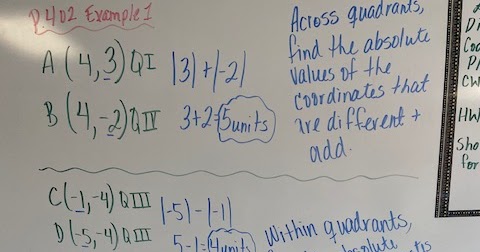 p.402 Example 1
A (4, 3) QI |3|+|-2|
B (4, -2) QIV 3+2=5units
Across quadrants,
find the absolute
values of the
coordinates that
are different +
add.
C(-1, -4) QIII |-5|-|-1|
D (-5, -4) QIII 5-1=4units
Within quadrants,
absolute
HW
Sho
for